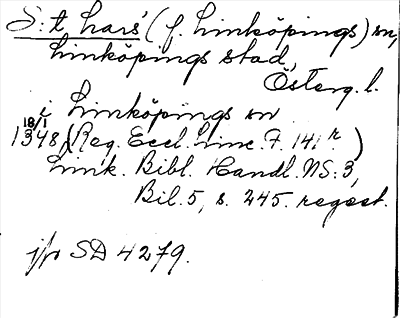 S:t Lars' (f. Linköpings) sn,
Linköpings stad,
Österg. l.
i Linköpings sn
18/1
1348, (Reg. Eccl. Linc. F. 141 r.)
Link. Bibl. Handl. NS: 3,
Bil. 5, s. 245. regest.
jfr SD 4279.